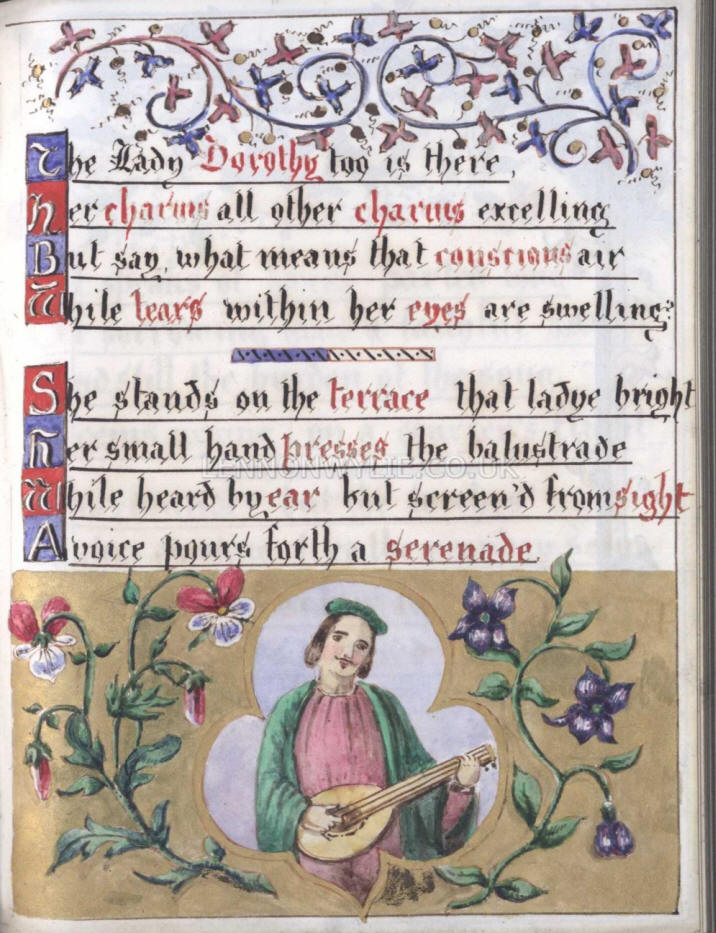 The Lady Dorothy too is there,
Her charms all other charms excelling
But say, what means that conscious air
While tears within her eyes are swelling?
She stands on the terrace that ladye bright
Her small hand presses the balustrade
While heard by ear but screen'd from sight
A voice pours forth a serenade.
LENNONWYLIE.CO.UK